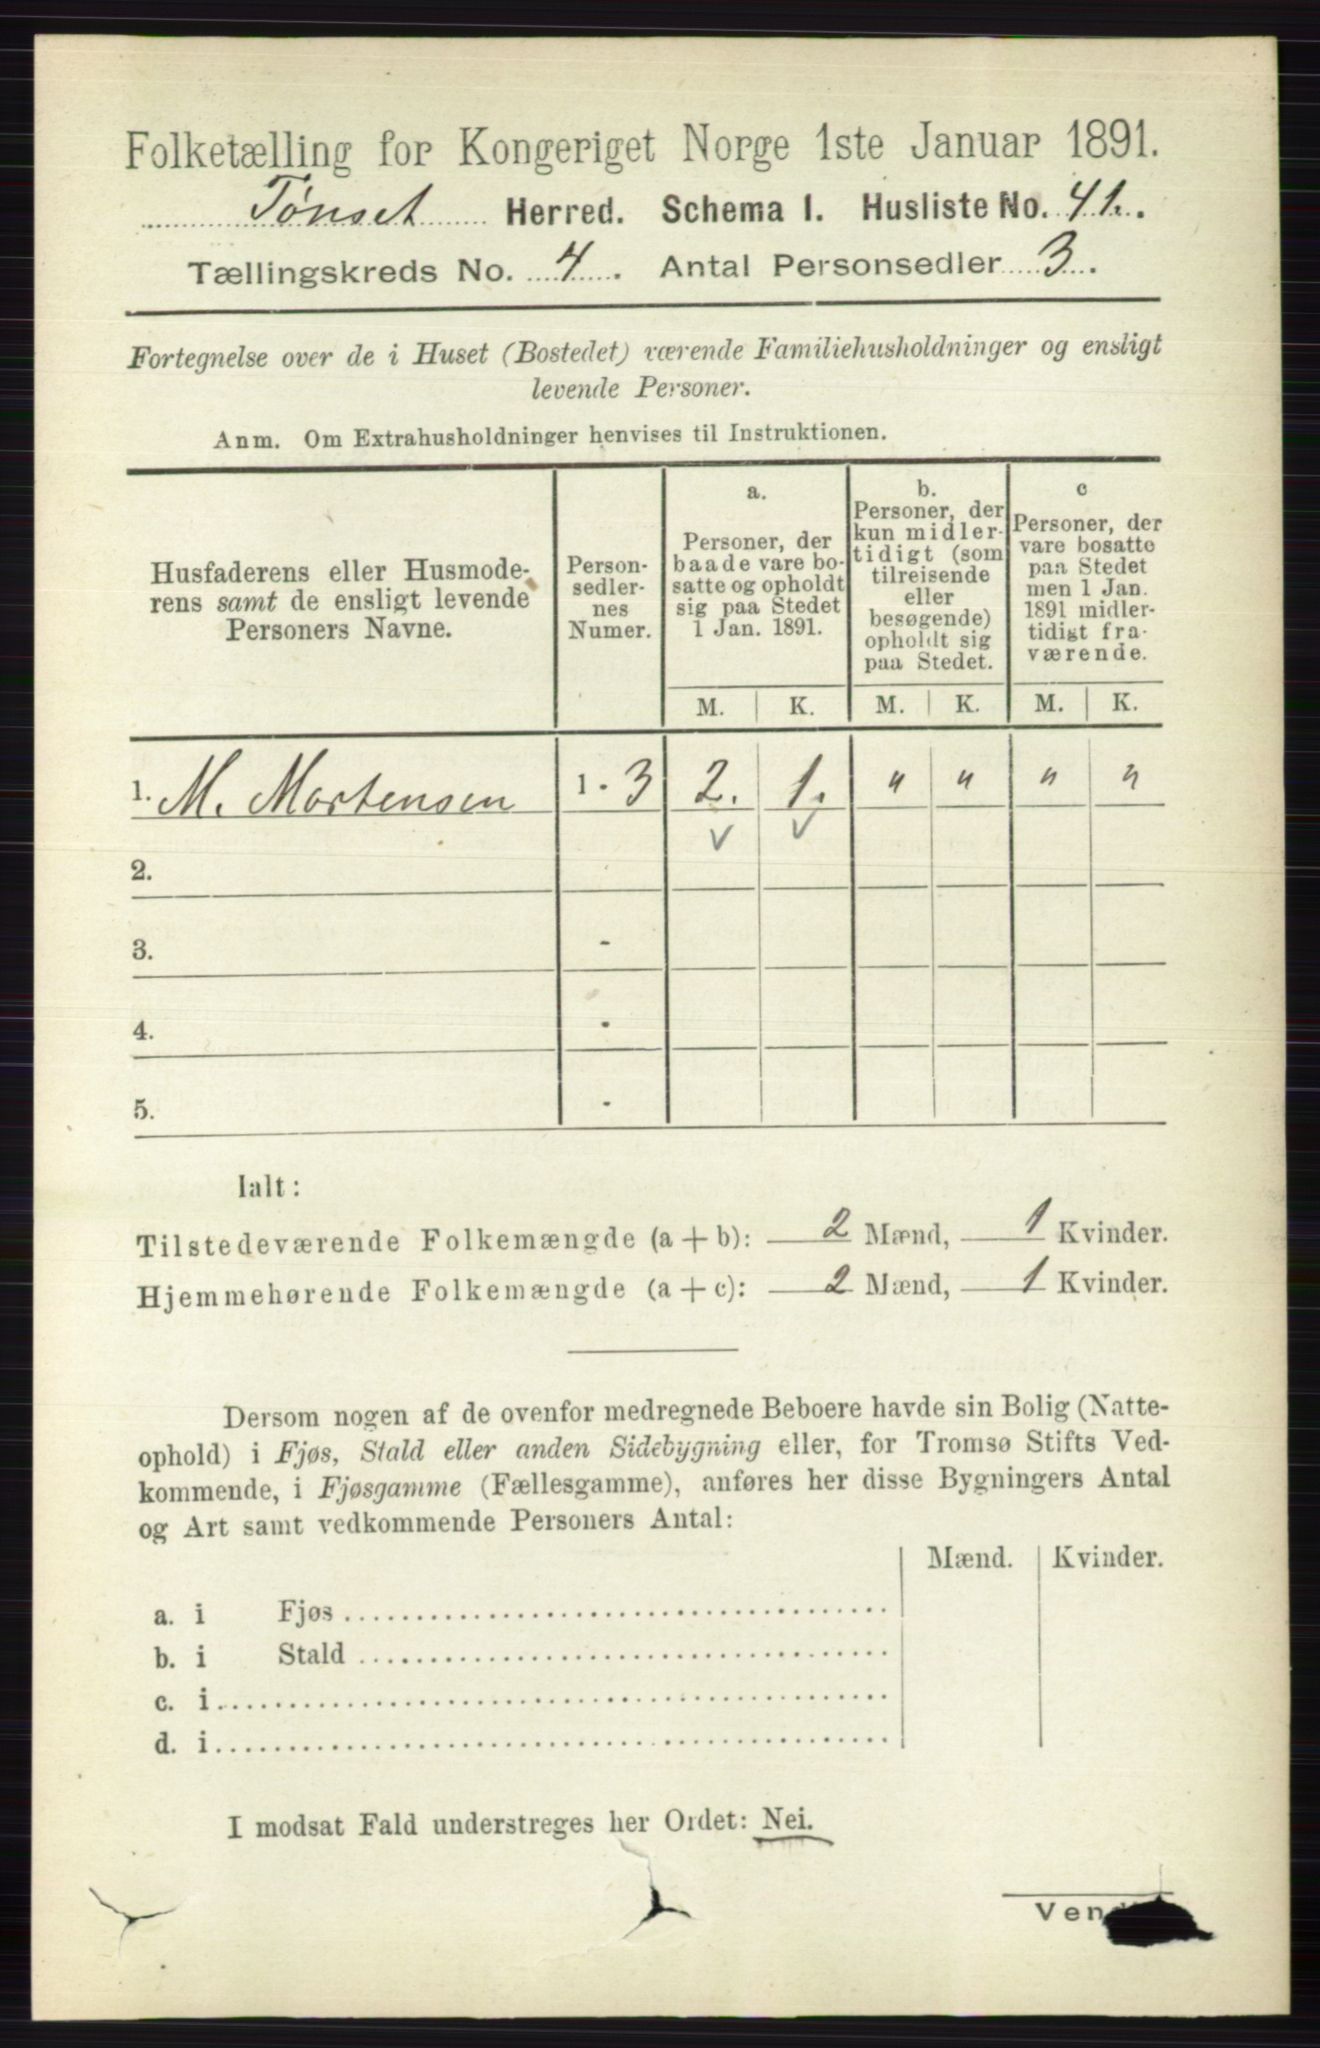 Folketælling for Kongeriget Norge 1ste Januar 1891.
Tønset Herred. Schema I. Husliste No. 41.
Tællingskreds No. 4. Antal Personsedler 3.
Fortegnelse over de i Huset (Bostedet) værende Familiehusholdninger og ensligt
levende Personer.
Anm. Om Extrahusholdninger henvises til Instruktionen.
Husfaderens eller Husmode-
rens samt de ensligt levende
Personers Navne.
Person-
sedler-
nes
Numer.
a.
Personer, der
baade vare bo-
satte og opholdt
sig paa Stedet
1 Jan. 1891.
b.
Personer, der
kun midler-
tidigt (som
tilreisende
eller
besøgende)
opholdt sig
paa Stedet.
c
Personer, der
vare bosatte
paa Stedet
men 1 Jan.
1891 midler-
tidigt fra-
værende.
M. K. M. K. M. K.
1. M. Mortensen 1 - 3 2. 1. " " " "
2.
3. -
4. -
5. -
Ialt:
Tilstedeværende Folkemængde (a + b): 2 Mænd, 1 Kvinder.
Hjemmehørende Folkemængde (a + c): 2 Mænd, 1 Kvinder.
Dersom nogen af de ovenfor medregnede Beboere havde sin Bolig (Natte-
ophold) i Fjøs, Stald eller anden Sidebygning eller, for Tromsø Stifts Ved-
kommende, i Fjøsgamme (Fællesgamme), anføres her disse Bygningers Antal
og Art samt vedkommende Personers Antal:
Mænd. Kvinder.
a. i Fjøs
b. i Stald
c. i
d. i
I modsat Fald understreges her Ordet: Nei.